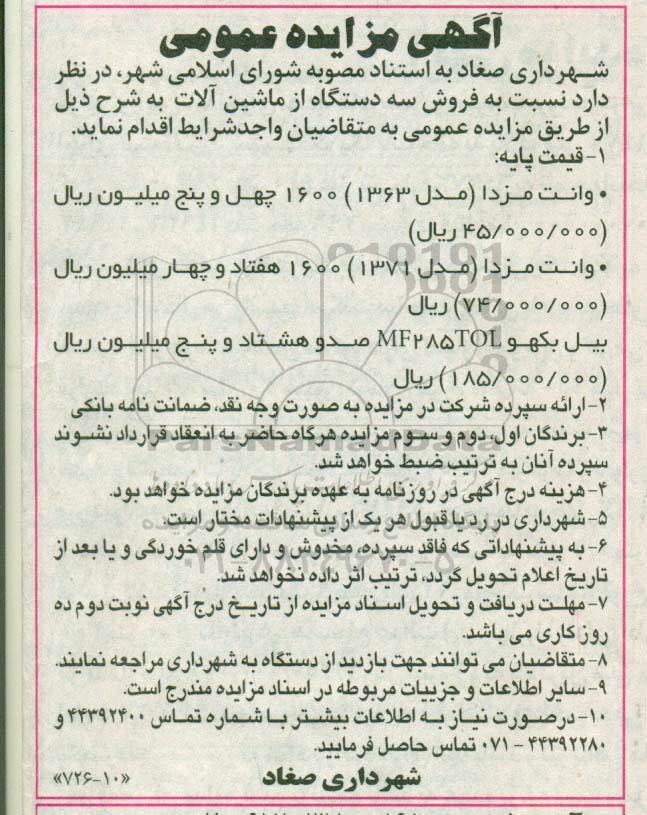 آگهی مزایده عمومی
شهرداری صغاد به استناد مصوبه شورای اسلامی شهر، در نظر
دارد نسبت به فروش سه دستگاه از ماشین آلات به شرح ذیل
از طریق مزایده عمومی به متقاضیان واجدشرایط اقدام نماید.
۱- قیمت پایه:
• وانت مزدا (مدل ۱۳۶۳) ۱۶۰۰ چهل و پنج میلیون ریال
(۴۵/۰۰۰/۰۰۰ ریال)
• وانت مزدا (مدل ۱۳۷۱) ۱۶۰۰ هفتاد و چهار میلیون ریال
(۷۴/۰۰۰/۰۰۰) ریال
بیل بکهو MF۲۸۵TOL صدو هشتاد و پنج میلیون ریال
(۱۸۵/۰۰۰/۰۰۰) ریال
۲- ارائه سپرده شرکت در مزایده به صورت وجه نقد، ضمانت نامه بانکی
۳- برندگان اول، دوم و سوم مزایده هرگاه حاضر به انعقاد قرارداد نشوند
سپرده آنان به ترتیب ضبط خواهد شد.
۴- هزینه درج آگهی در روزنامه به عهده برندگان مزایده خواهد بود.
۵- شهرداری در رد یا قبول هر یک از پیشنهادات مختار است.
۶- به پیشنهاداتی که فاقد سپرده، مخدوش و دارای قلم خوردگی و یا بعد از
تاریخ اعلام تحویل گردد، ترتیب اثر داده نخواهد شد.
۷- مهلت دریافت و تحویل اسناد مزایده از تاریخ درج آگهی نوبت دوم ده
روز کاری می باشد.
۸- متقاضیان می توانند جهت بازدید از دستگاه به شهرداری مراجعه نمایند.
۹- سایر اطلاعات و جزییات مربوطه در اسناد مزایده مندرج است.
۱۰- درصورت نیاز به اطلاعات بیشتر با شماره تماس ۴۴۳۹۲۴۰۰ و
۴۴۳۹۲۲۸۰ - ۰۷۱ تماس حاصل فرمایید.
شهرداری صغاد
«۷۲۶-۱۰»
ParsNamadData